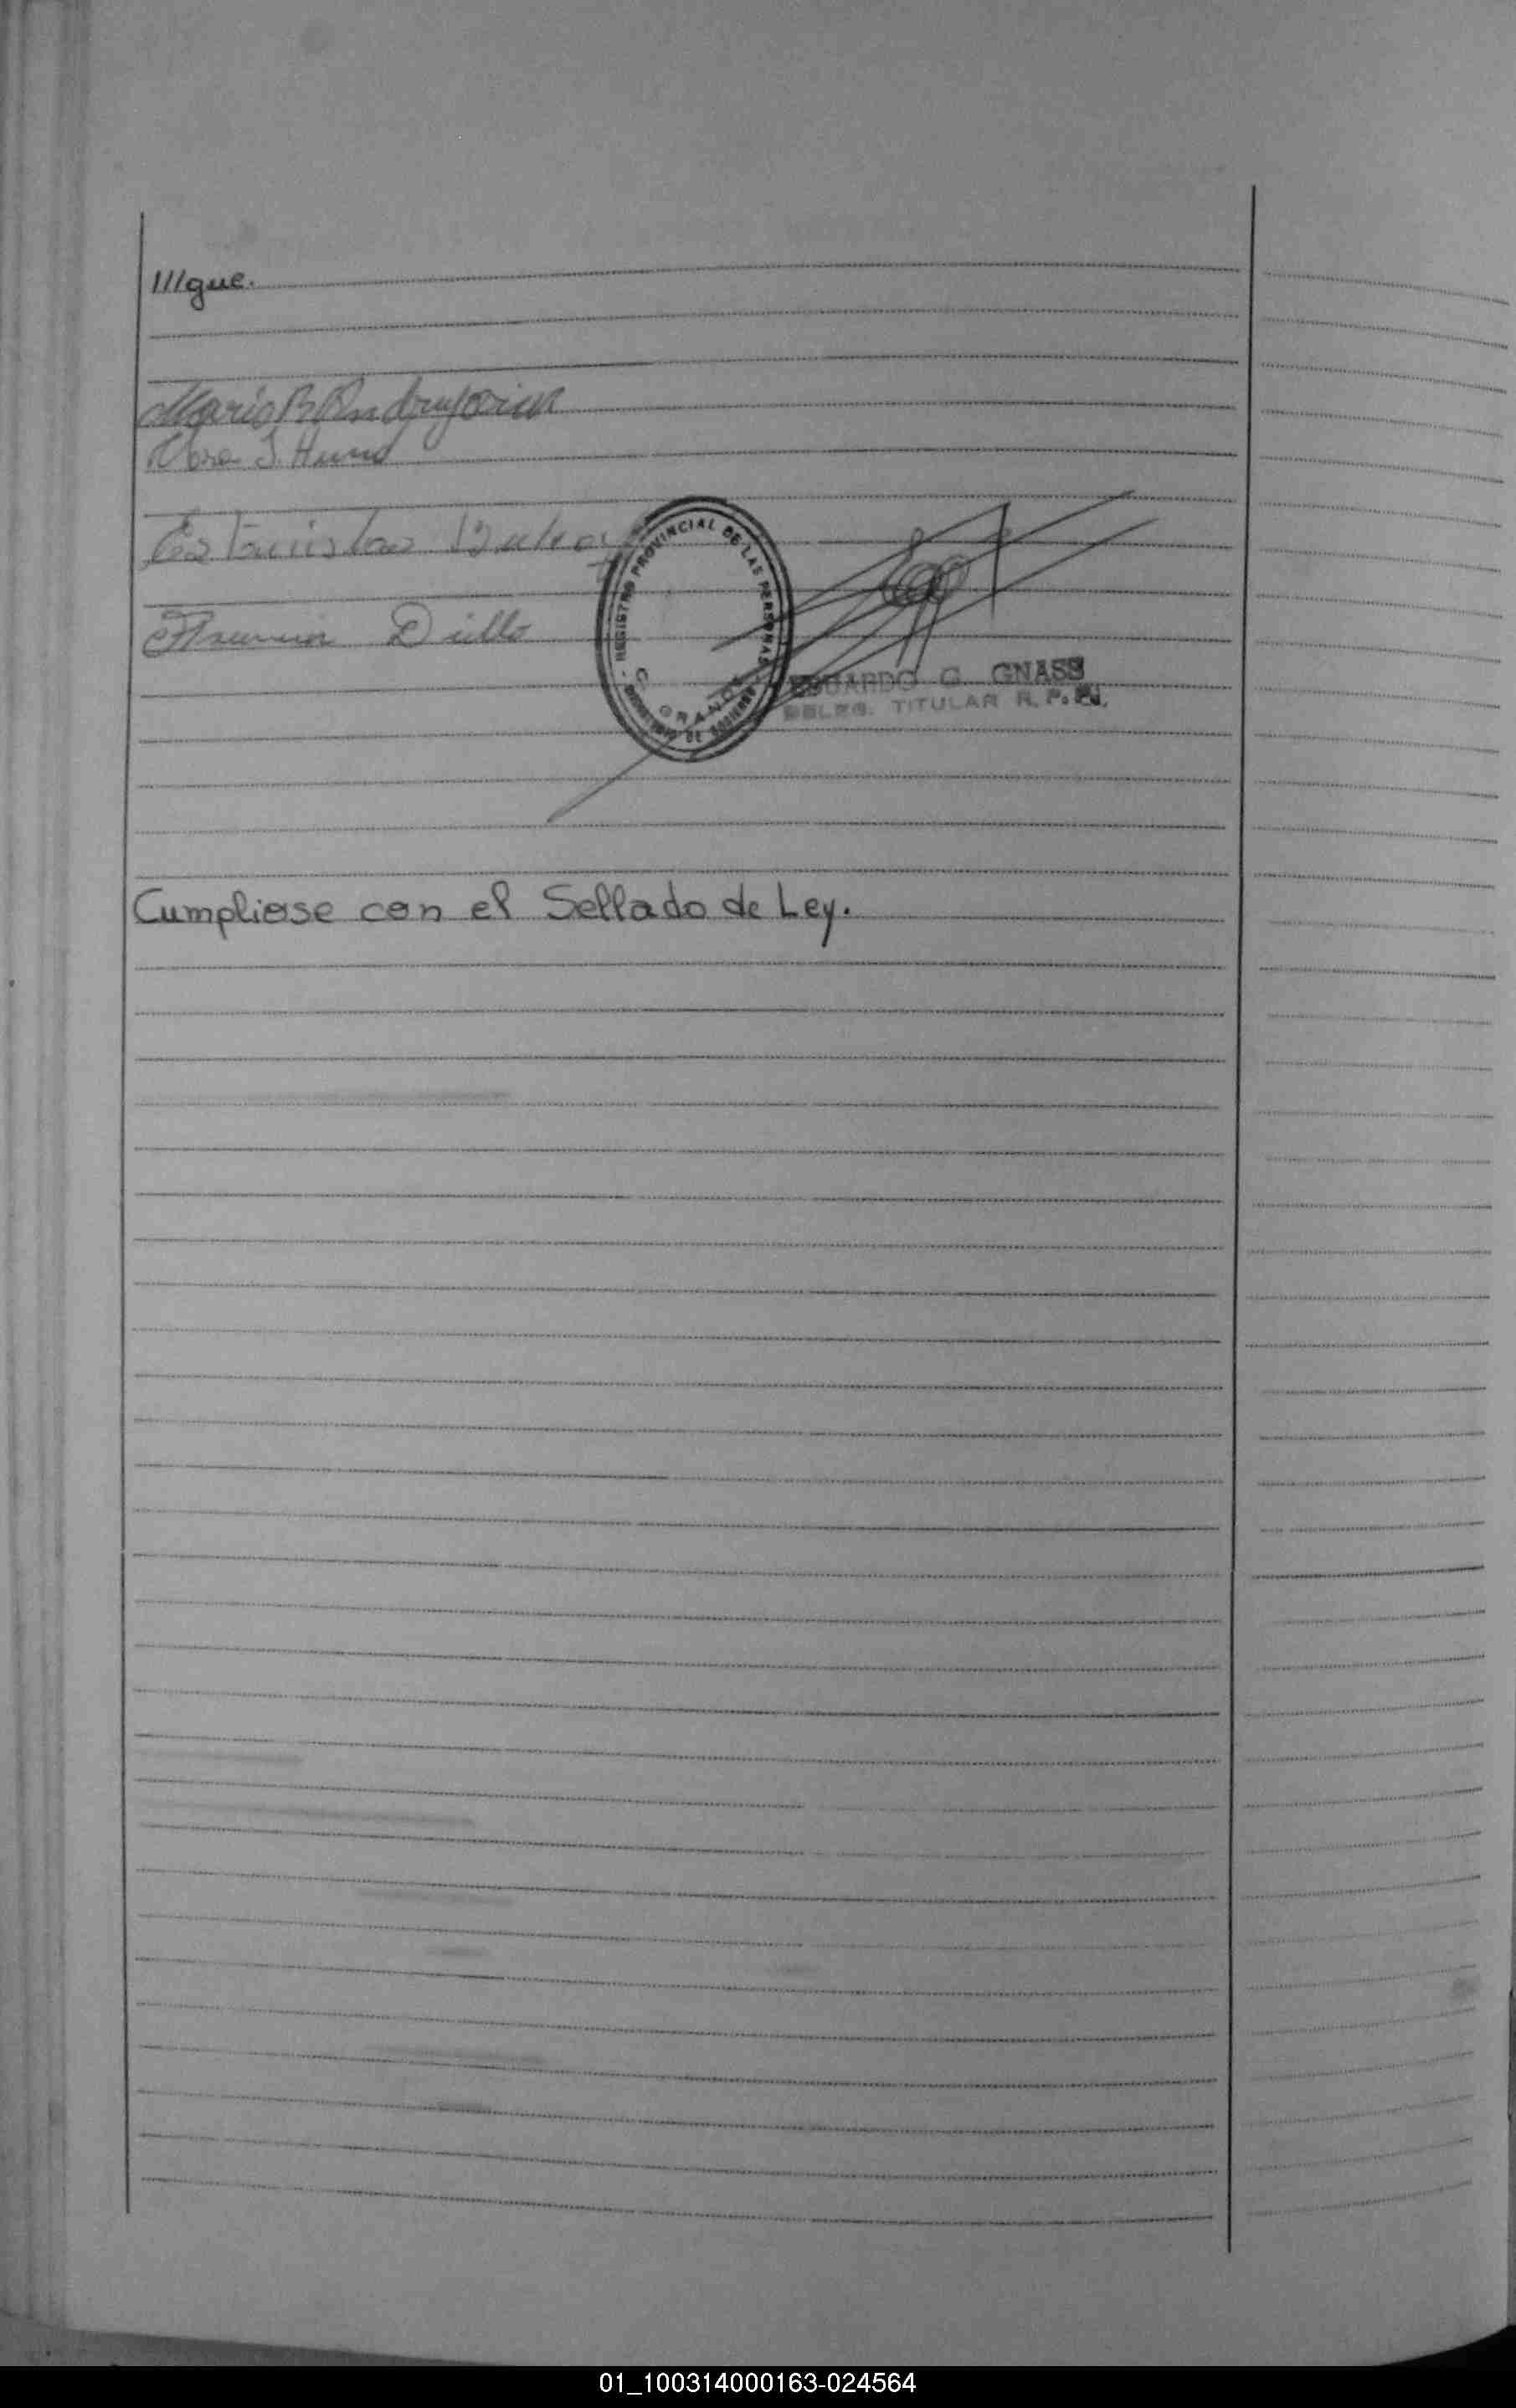 ///gue.
Mario R
S.
Estanislao
Dillo
REGISTRO PROVINCIAL DE LAS PERSONAS
C. GRANDE
MINISTERIO DE GOBIERNO
EDUARDO G. GNASS
DELEG. TITULAR R. P. P.
Cumpliose con el Sellado de Ley.
01_100314000163-024564